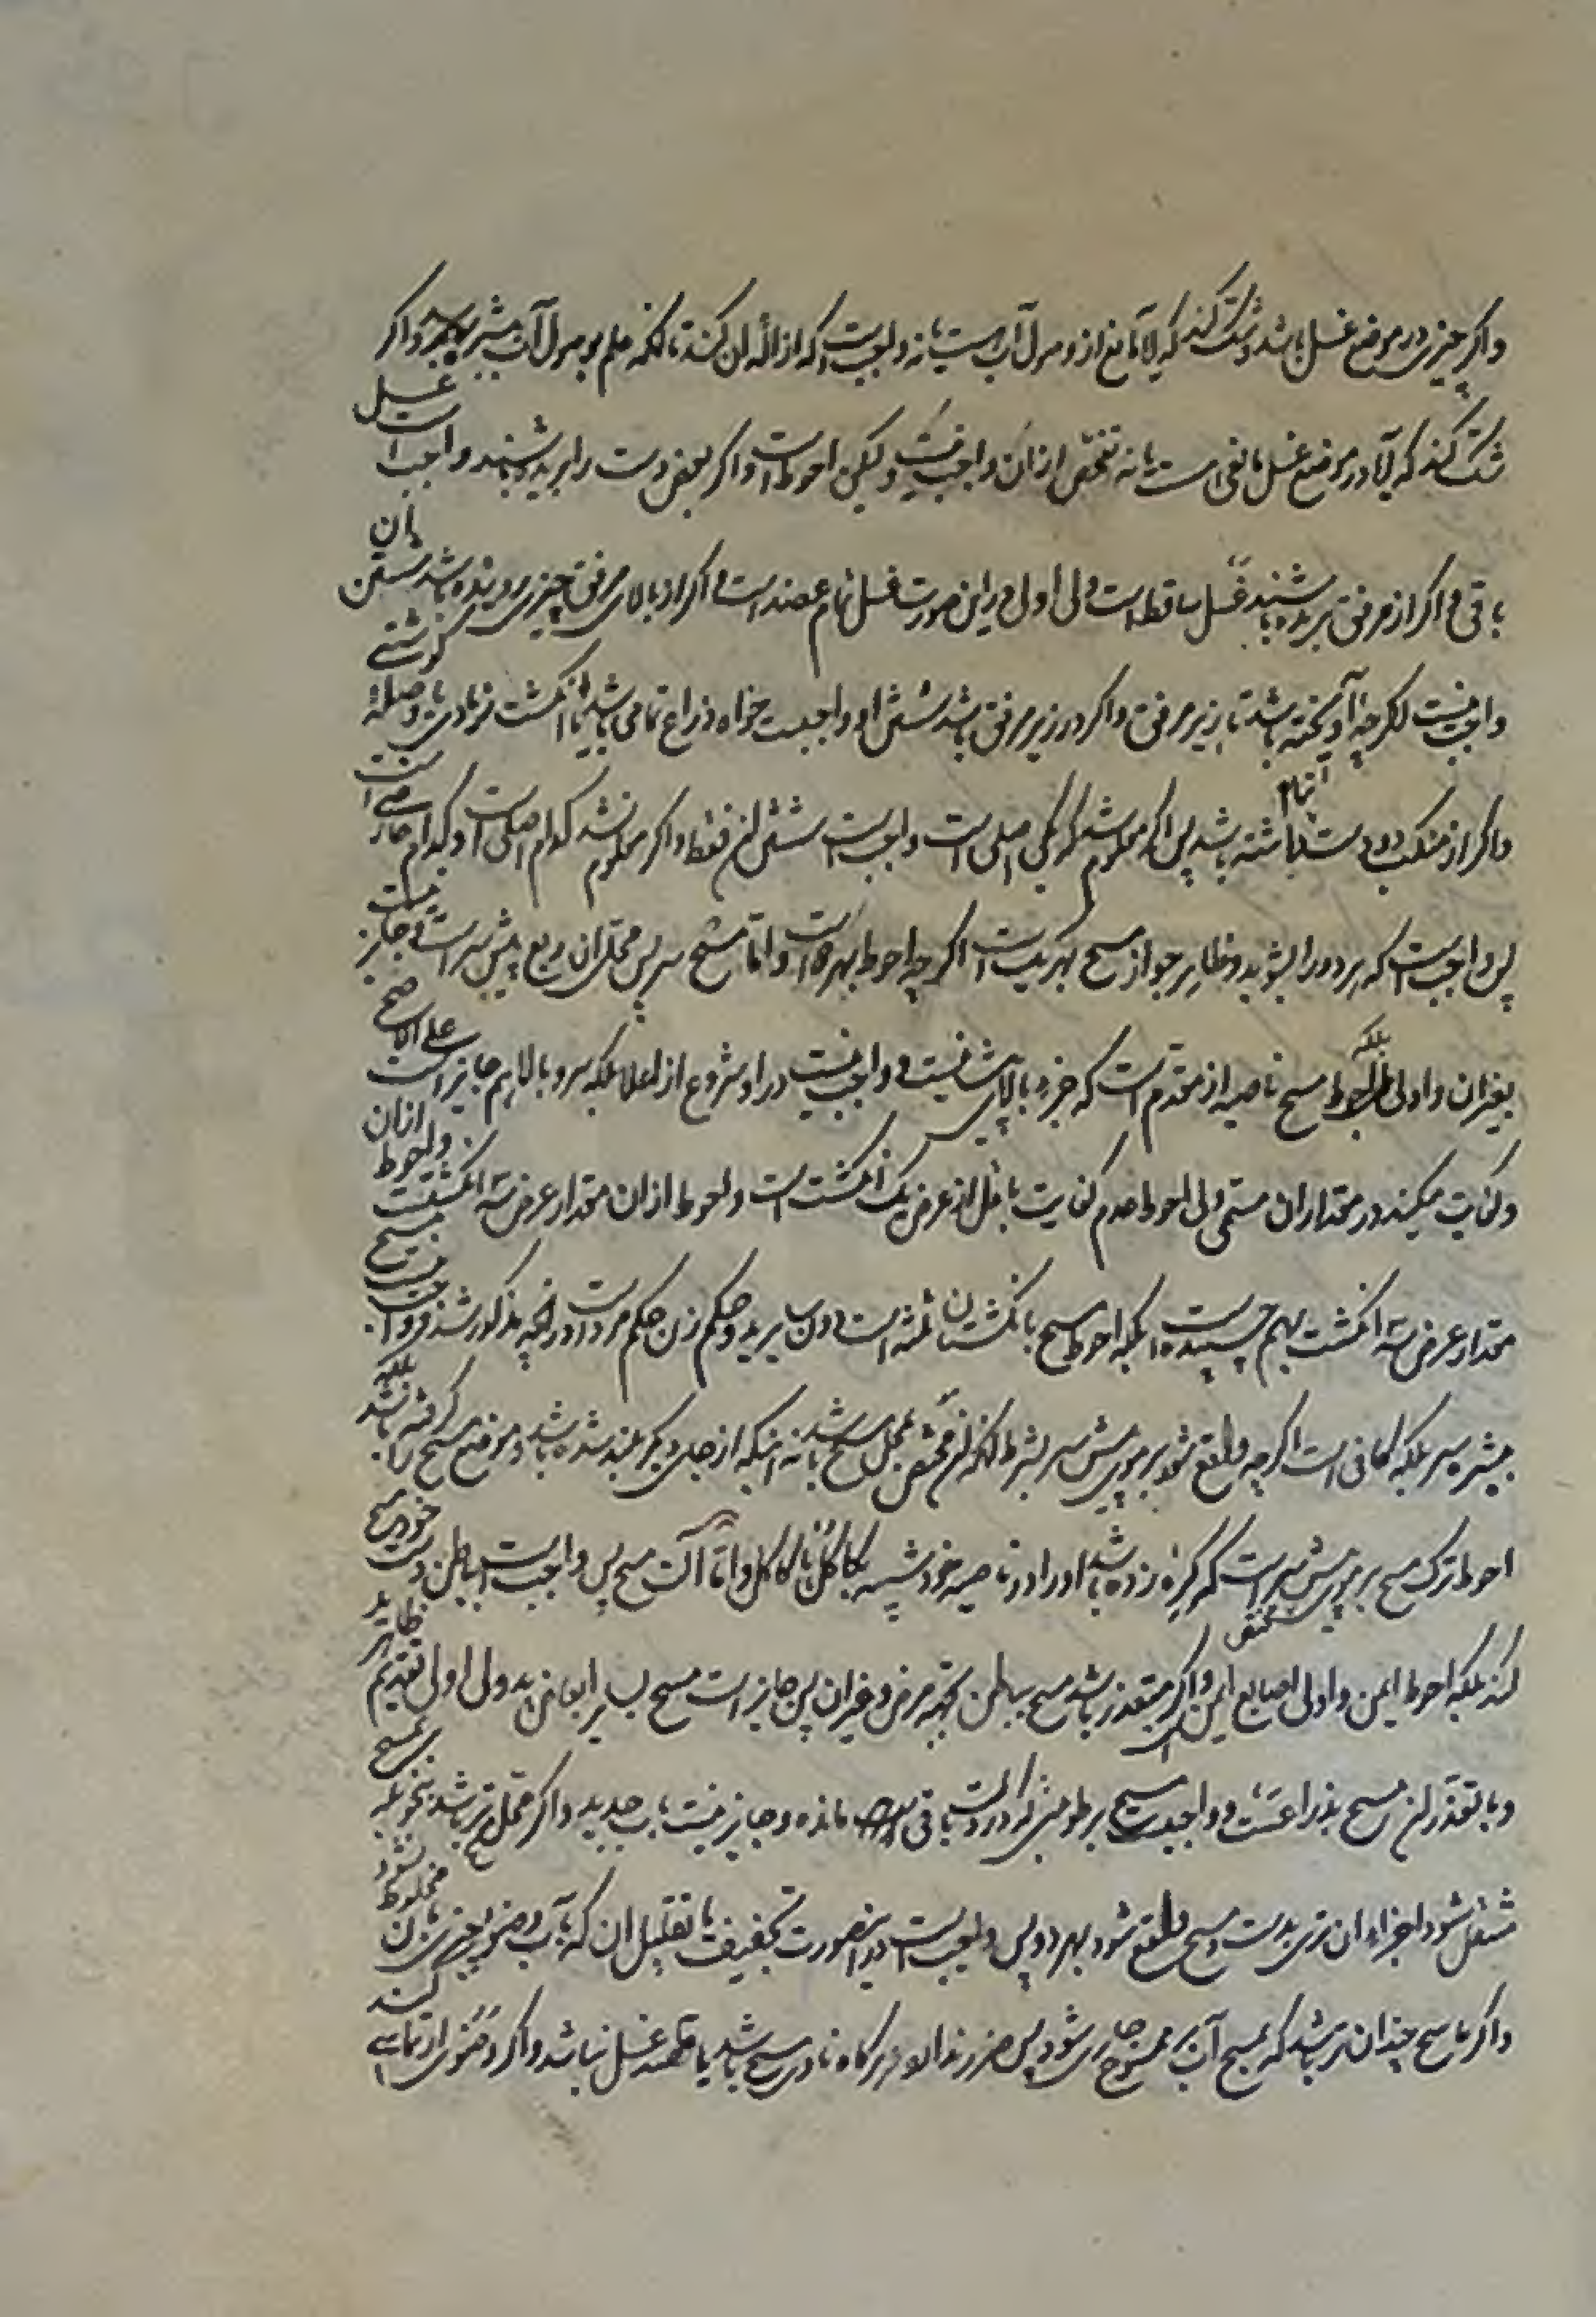 و اگر چیزی در موضع غسل باشد و شک کند که آیا مانع از وصول آب است یا نه واجبست که ازاله آن کند تا آنکه علم بوصول آب ببشره و اگر
شک کند که آیا در موضع غسل مانعی است یا نه تفحص از آن واجب نیست و لیکن احوط است و اگر بعض دست را بریده باشند واجبست غسل
باقی و اگر از مرفق بریده باشند غسل ساقط است ولی اولی در این صورت غسل تمام عضد است و اگر از بالای مرفق چیزی روییده باشد شستن آن
واجب نیست اگرچه آویخته باشد تا زیر مرفق و اگر در زیر مرفق باشد شستن او واجبست خواه ذراع تمامی باشد یا انگشت زیادی یا وصله گوشتی
و اگر از منکب دو دست تمام داشته باشد پس اگر معلوم شد که یکی اصلی است واجب است شستن آن فقط و اگر معلوم نشد کدام اصلی است و کدام خارجی است
پس واجب است که هر دو را بشوید و ظاهر جواز مسح بهر یک است اگر چه احوط بهر دو است و اما مسح سر پس محل آن ربع پیش سر است و جایز نیست
بغیر آن و اولی بلکه احوط مسح ناصیه از مقدم است که جزء بالای پیشانیست و واجب نیست در او شروع از اعلا بلکه سر و بالا هم جایز است علی الاصح
و کفایت میکند در مقدار آن مسمی ولی احوط عدم کفایت باقل از عرض یک انگشت است و احوط از آن مقدار عرض سه انگشتست و احوط از آن
مقدار عرض سه انگشت بهم چسبیده است بلکه احوط مسح بانگشتان ثلثه است دون سایر ید و حکم زن حکم مرد است در آنچه مذکور شد و واجب نیست مسح
ببشره سر بلکه کافی است اگر چه واقع شود بر موی پیش سر بشرط آنکه آن مختص بمحل مسح باشد نه اینکه از جای دیگر بلند شده باشد و موضع مسح را گرفته باشد بلکه
احوط ترک مسح بر موی پیش سر است که گره زده باشد او را در ناصیه خود شبیه بکاکل یا کاکل و اما آلت مسح پس واجب است بباطن دست خود مسح
کند بلکه احوط ایمن و اولی اصابع ایمن است و اگر متعذر باشد مسح بباطن کف بجهة مرض و غیر آن پس جایز است مسح بسایر ابعاض ید ولی اولی تقدیم ظاهر ید
و با تعذر آن مسح بذراعست و واجبست مسح برطوبتی که در دست باقی مانده و جایز نیست بآب جدید و اگر محل مسح تر باشد بنحوی که
منتقل شود اجزاء آن تری بدست و مسح واقع شود بهر دو پس واجب است در اینصورت تجفیف یا تقلیل آن که بآب وضو چیزی از آن مخلوط نشود
و اگر ماسح چندان تر باشد که بمسح آب بر ممسوح جاری شود پس ضرر ندارد هر گاه ناوی مسح باشد یا قصد غسل نباشد و اگر وضوی ارتماسی کند